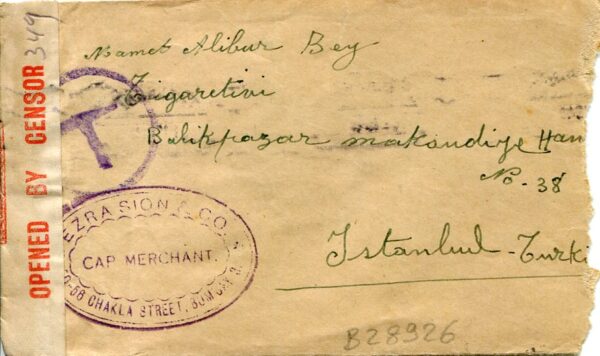 Mamet Alibur Bey
Zigaretivi
Balikpazar maksudiye Han
No. 38
Istanbul - Turki
OPENED BY CENSOR
349
T
EZRA SION & CO.
CAP MERCHANT.
58 CHAKLA STREET, BOMBAY
B28926